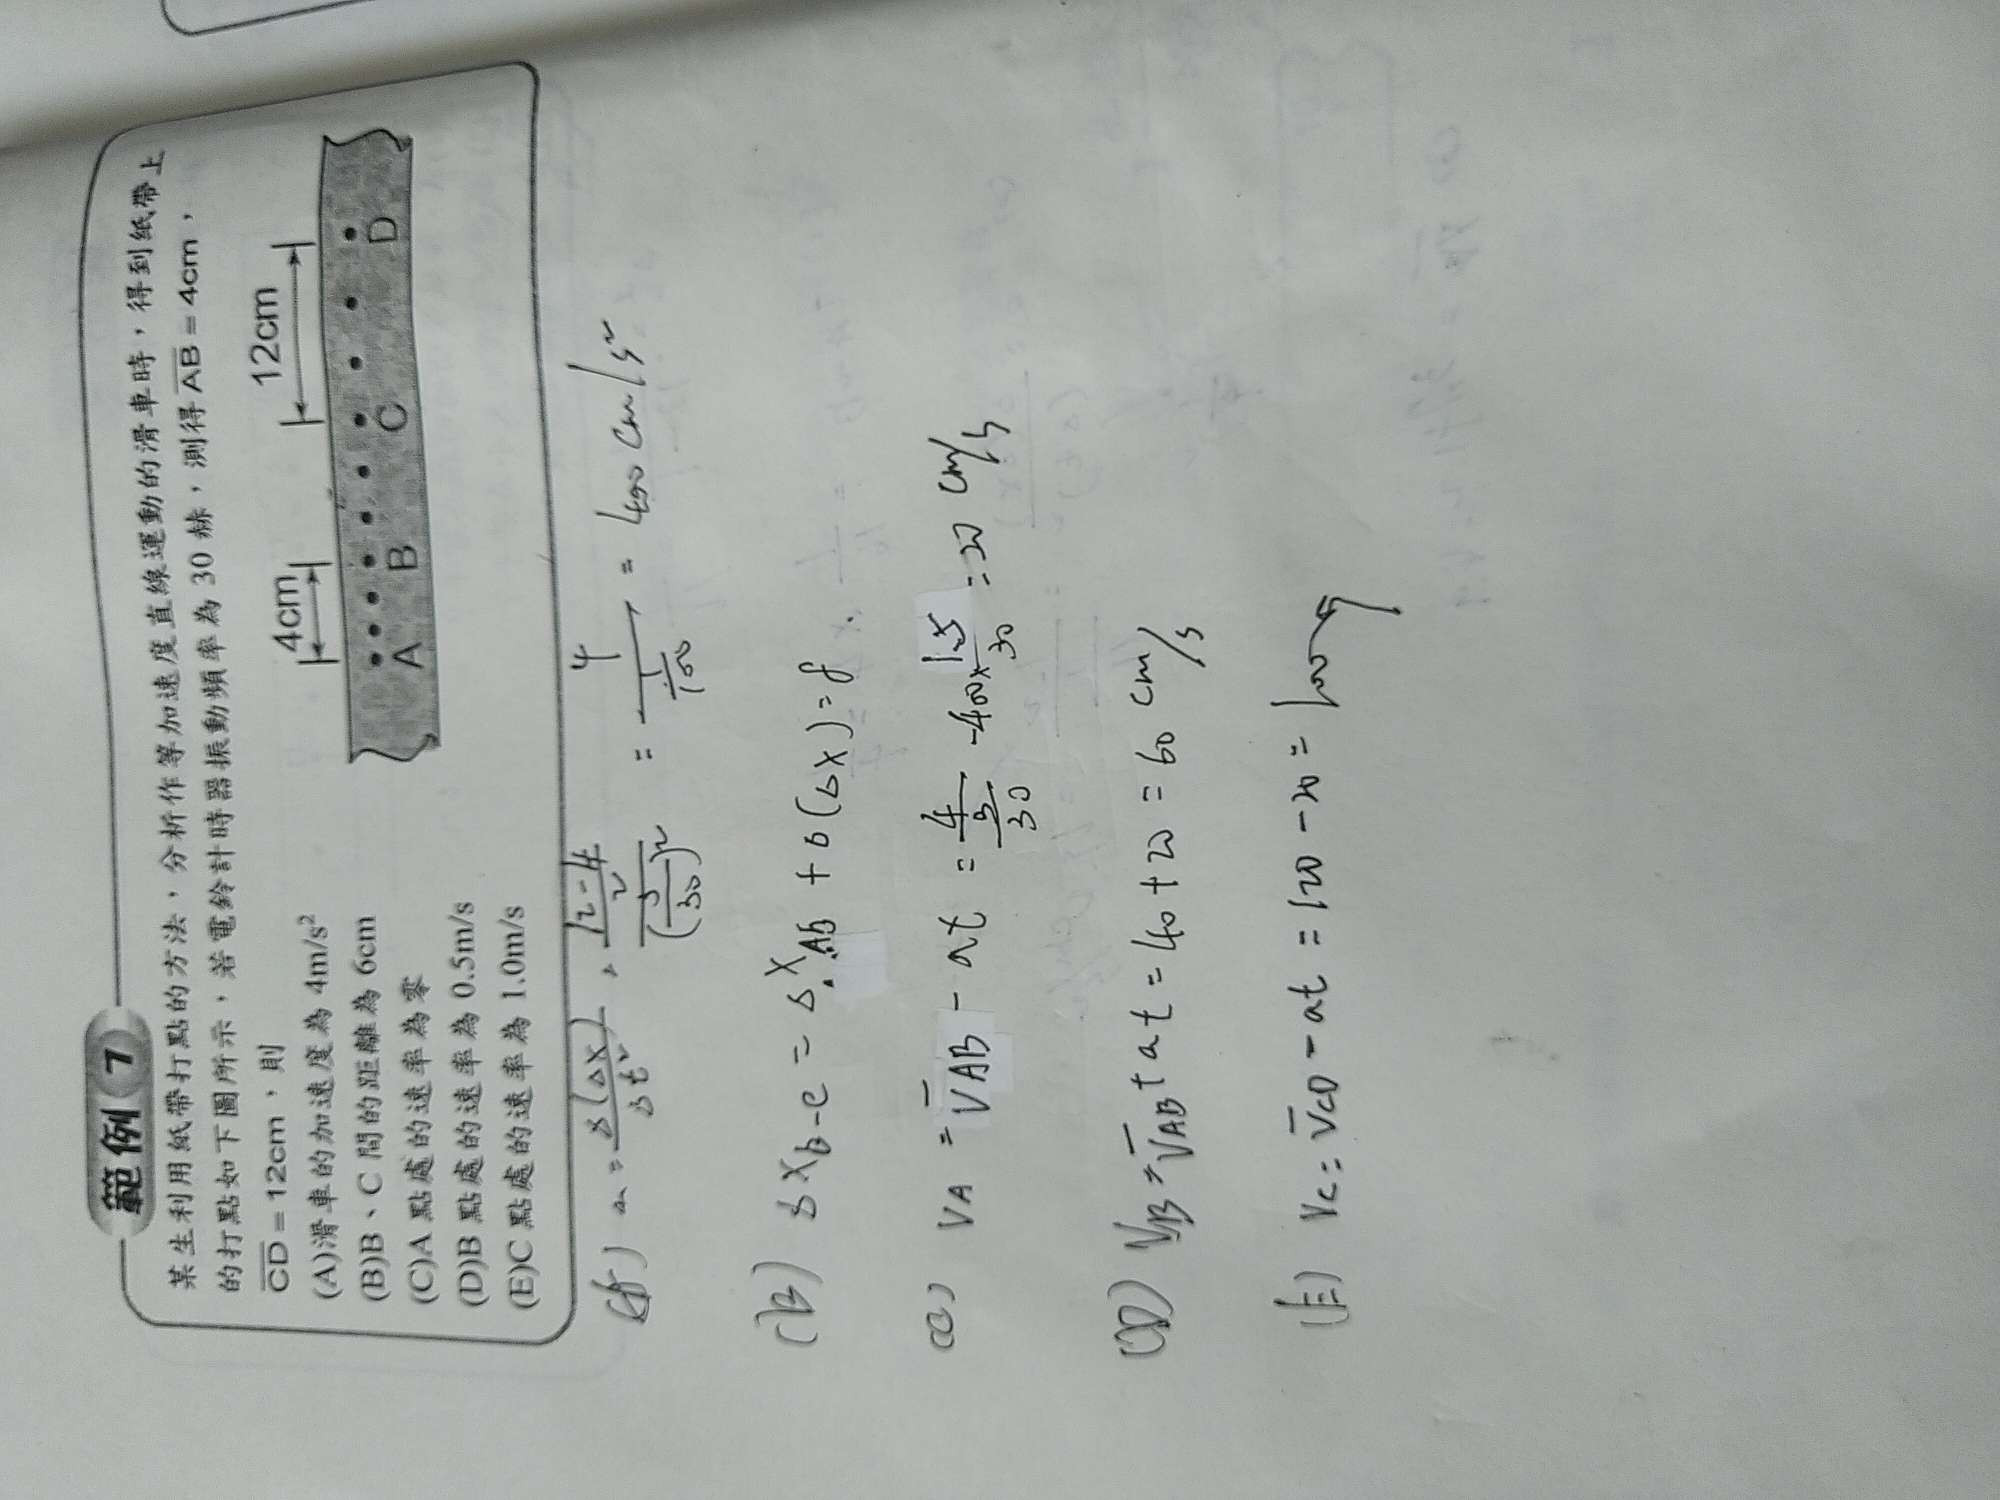 範例 7
某生利用紙帶打點的方法，分析作等加速度直線運動的滑車時，得到紙帶上
的打點如下圖所示，若電鈴計時器振動頻率為 30 赫，測得 AB = 4cm，
CD = 12cm，則
(A)滑車的加速度為 4m/s²
(B)B、C 間的距離為 6cm
(C)A 點處的速率為零
(D)B 點處的速率為 0.5m/s
(E)C 點處的速率為 1.0m/s
4cm 12cm
A B C D
a = Δ(ΔX)/Δt² = (12-4)/2 / (3/30)² = 4 / (1/100) = 400 cm/s²
(B) ΔX B-C = ΔX AB + Δ(ΔX) = 8
(C) VA = V̄AB - at = 4 / (3/30) - 400 × 1.5/30 = 20 cm/s
(D) VB = V̄AB + at = 40 + 20 = 60 cm/s
(E) VC = V̄CD - at = 120 - 20 = 100